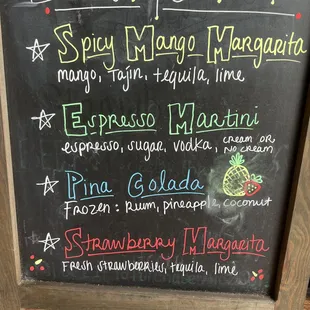 Spicy Mango Margarita
mango, Tajin, tequila, lime
Espresso Martini
espresso, sugar, vodka, cream or no cream
Pina Colada
Frozen: Rum, pineapple, coconut
Strawberry Margarita
Fresh strawberries, tequila, lime